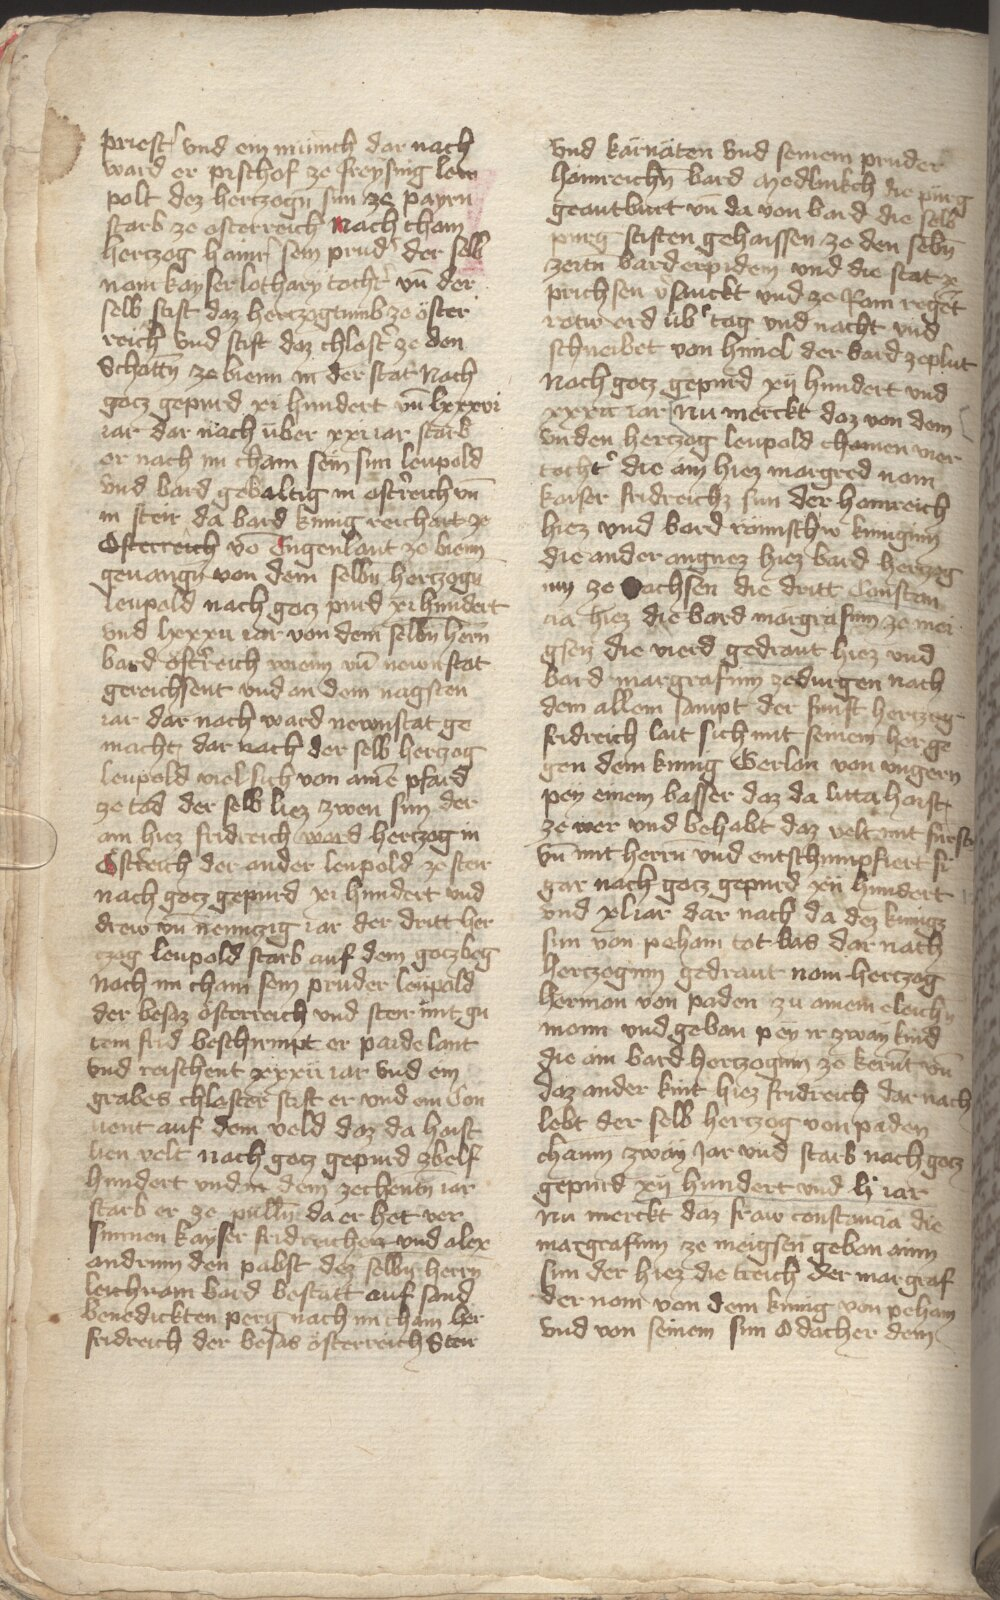 priest' vnd ein münich dar nach
ward er pischof ze freysing lew
polt dez hertzogn sun ze payrn
starb ze osterreich Nach cham
hertzog hainr' sein prud' der selb
nam kayser lothary tocht' vn̄ der
selb stift daz hertzogtumb ze öster
reich vnd stift daz chlost' ze den
Schottn̄ ze bienn in der stat Nach
gotz gepurd xi hundert vn̄ lxxxvi
iar dar nach über xxi iar starb
er nach im cham sein sun leupold
vnd bard gebaltig in ost'reich vn̄
in steir da bard kunig reichart ze
Osterreich vō Engenlant ze bienn
geuangn̄ von dem selbn̄ hertzogn̄
leupald nach gotz purd xi hundert
vnd lxxxii iar von dem selbn̄ hern̄
bard öst'reich wienn vn̄ newnstat
gereichsent vnd an dem nagsten
iar dar nach ward newnstat ge
macht dar nach der selb hertzog
leupold viel sich von ainē pfärd
ze tod der selb liez zwen sun der
ain hiez fridreich ward hertzog in
Öst'reich der ander leupold ze steir
nach gotz gepurd xi hundert vnd
drew vn̄ neunczig iar der dritt her
czog leupold starb auf dem goczbeg
Nach im cham sein pruder leupold
der besaz österreich vnd steir mit gu
tem frid beschirmpt er paide lant
vnd reischent xxxii iar vnd ein
grabes chloster stift er vnd ein Con
uent auf dem veld daz da haist
lien velt nach gotz gepurd zbelf
hundert vnd in dem zechentn̄ iar
starb er ze pülln̄ da er het ver
sunnen kayser fridreichen vnd alex
andrum den pabst dez selbn̄ herrn̄
leichnam bard bestatt auf sand
benedickten perg nach im cham her
fridreich der besas österreich Steir
vnd kärnäten vnd seinem pruder
hainreichn̄ bard medlinkch die purg
geantburt vn̄ da von bard die selb
purg stiften gehaissen ze den selbn̄
zeitn̄ bard erpidem vnd die stat ze
prichsen v'sanckt vnd ze Rom regēt
rotw erd üb' tag vnd nacht vnd
schneibet von himel der bard ze plut
Nach gotz gepurd xij hundert vnd
xxxii iar Nu merckt daz von dem
vnden hertzog leupold chomen vier
tocht' die ain hiez margred nam
kaiser fridreichz sun der hainreich
hiez vnd bard römischw kuniginn
die ander angnez hiez bard hertzog
inn ze Sachsen die dritt Constan
cia hiez die bard margrafinn ze mei
gsen die vierd gedraut hiez vnd
bard margrafinn ze durgen nach
dem allem sampt der funft hertzog
fridreich lait sich mit seinem her ge
gen dem kunig Gerlon von vngern
pey einem basser daz da litta haist
ze wer vnd behabt daz velt mit fursten
vn̄ mit herrn̄ vnd entschimpfiert si
gar nach gotz gepurd xii hundert
vnd xl iar dar nach da dez kunigz
sun von peham tot bas dar nach
hertzoginn gedraut nam hertzog
herman von paden zu ainem eleichn̄
mann vnd geban pey ir zway kind
die ain bard hertzoginn ze kernt vn̄
daz ander kint hiez fridreich dar nach
lebt der selb hertzog von paden
chaum zway Jar vnd starb nach gotz
gepurd xij hundert vnd lj iar
Nu merckt daz fraw constancia die
margrafinn ze meigsen geban ainn
sun der hiez die treich der margraf
der nam von dem kunig von peham
vnd von seinem sun Odacher dem